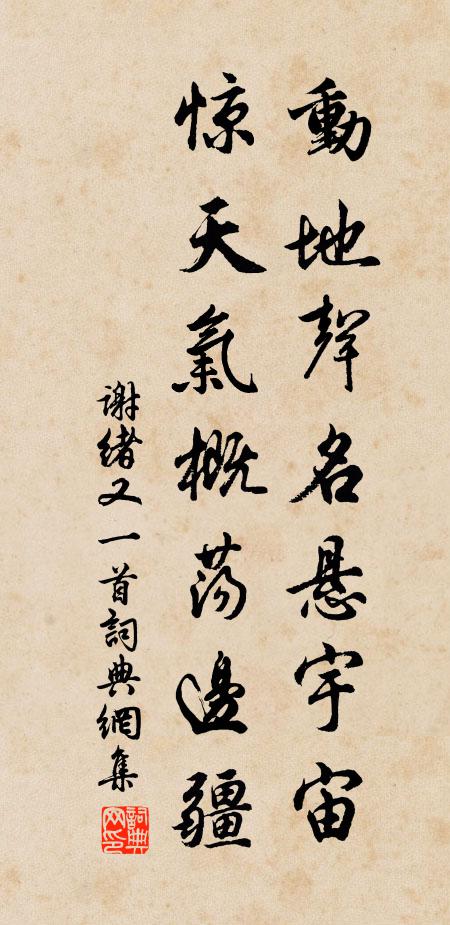 動地聲名懸宇宙
惊天氣概荡邊疆
谢緒又一首詞典網集
詞典网印